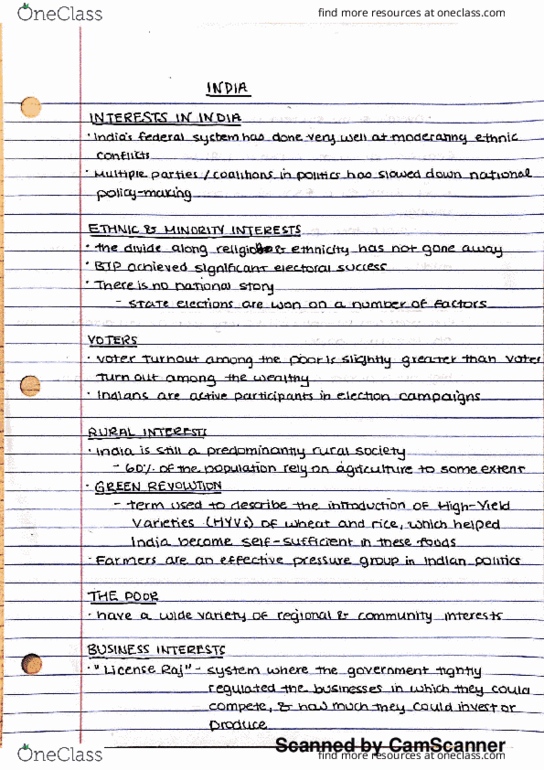 OneClass
find more resources at oneclass.com
INDIA
INTERESTS IN INDIA
· India's federal system has done very well at moderating ethnic
conflicts
· Multiple parties/coalitions in politics has slowed down national
policy-making
ETHNIC & MINORITY INTERESTS
· the divide along religion & ethnicity has not gone away
· BJP achieved significant electoral success
· There is no national story
- state elections are won on a number of factors
VOTERS
· voter turnout among the poor is slightly greater than voter
turn out among the wealthy
· Indians are active participants in election campaigns
RURAL INTERESTS
· India is still a predominantly rural society
- 60% of the population rely on agriculture to some extent
· GREEN REVOLUTION
- term used to describe the introduction of High-Yield
Varieties (HYVs) of wheat and rice, which helped
India become self-sufficient in these foods
· Farmers are an effective pressure group in Indian politics
THE POOR
· have a wide variety of regional & community interests
BUSINESS INTERESTS
· "License Raj" - system where the government tightly
regulated the businesses in which they could
compete, & how much they could invest or
produce
Scanned by CamScanner
OneClass
find more resources at oneclass.com